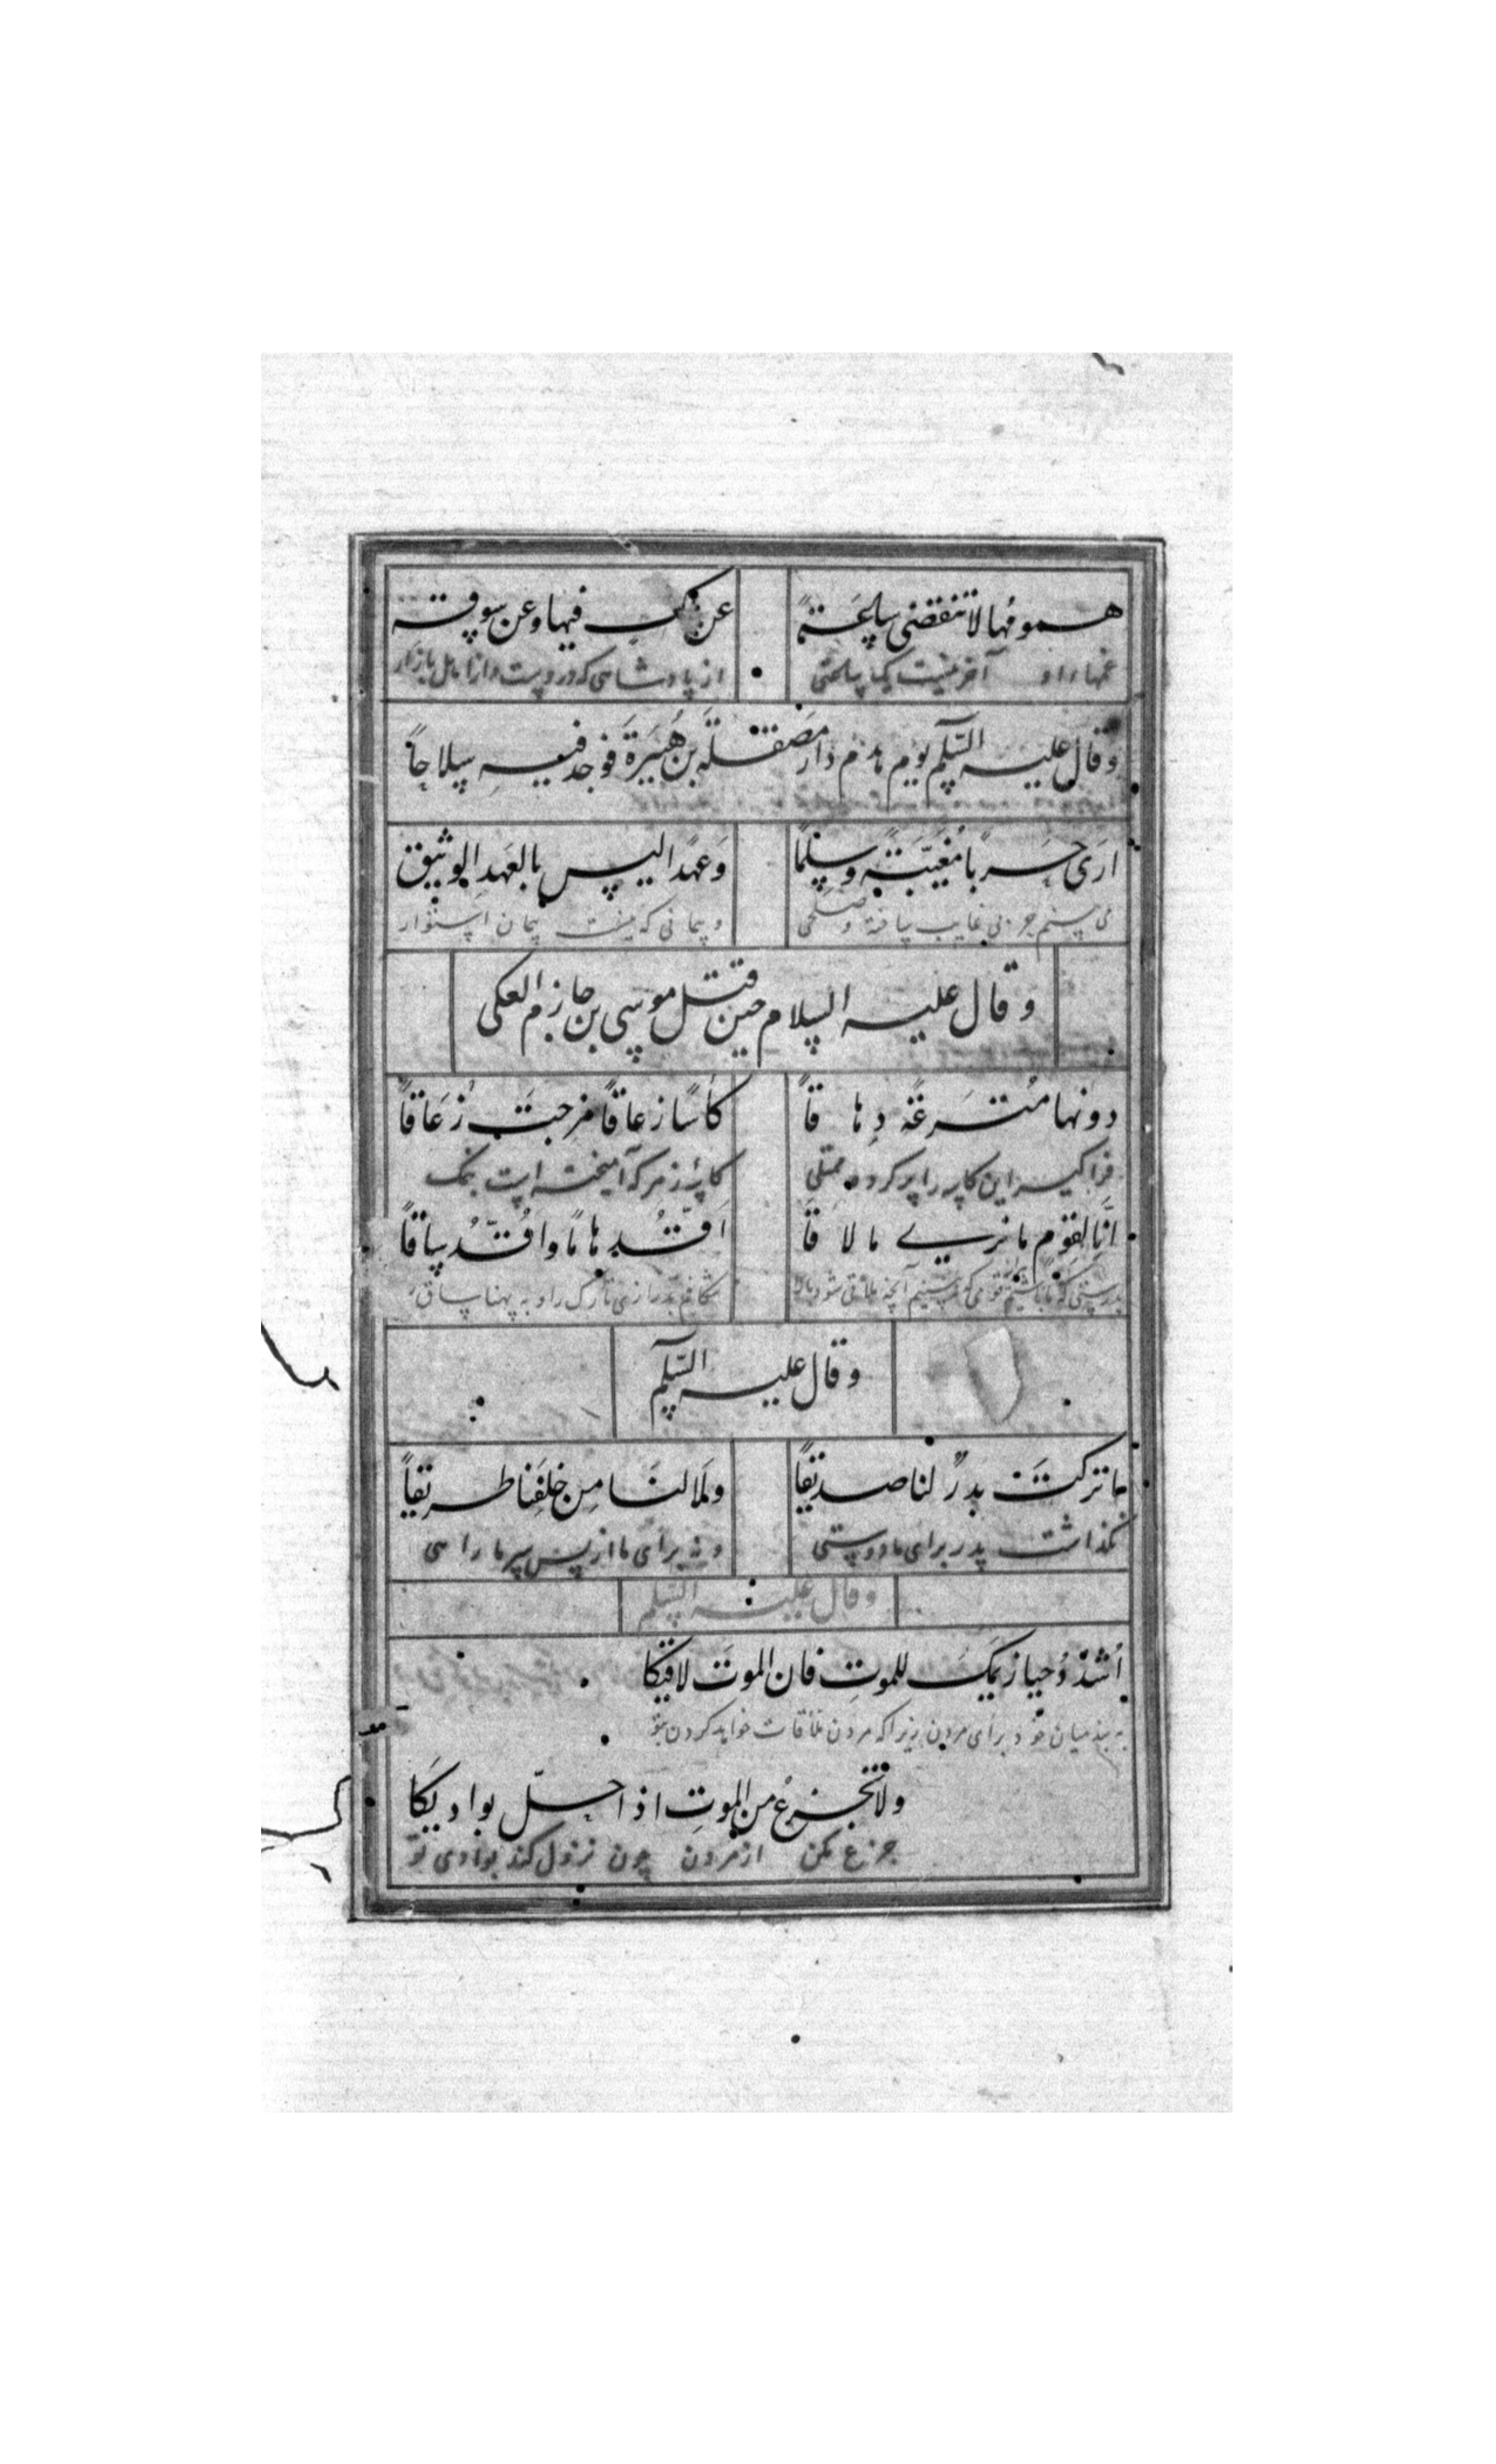 همومُها لا تنقضی ساعةً عن ملك فیها و عن سوقته
غمهاء او آخر نیست یک ساعتی از پادشاهی که دروست و از اهل بازار
و قال علیه السّلم یوم هدم دار مَصقلة بن هُبَیرَةَ فوجد فیه سلاحاً
اَرَی حَرباً مُغَیَّبَةً و سِلماً وَعَهداً لیس بالعَهدِ الوثیق
می بینم حربی غایب یافته و صلحی و پیمانی که نیست پیمان استوار
و قال علیه السلام حین قتل موسی بن حازم العکی
دونها مُترَعَةً دِهاقاً کأساً زعاقاً مزجت زُعَاقاً
فرا گیر این کاسه را پر کرده ممتلی کاسهٔ زهر که آمیخته است بنمک
انّا لقوم ما نری ما لاقاَ اَقُدّ هاماً و اَقُدُّ ساقاً
بدرستی که ما قومی که نمی بینیم آنچه ملاقی شود ما را شکافم بدرازی تارک را و به پهنا ساق
و قال علیه السّلم
ما ترکتَ بدرٌ لنا صدیقاً و لا لنَا مِن خلفَنا طریقاً
نگذاشت بدر برای ما دوستی و نه برای ما از پس سر ما راهی
و قال علیه السّلم
اُشدُد حیازیمَکَ للموتِ فان الموتَ لاقیکا
به بند میان خود برای مردن زیرا که مردن ملاقات خواهد کردن بتو
ولا تجزع من الموتِ اذا حلّ بوادیکَا
جزع مکن از مردن چون نزول کند بوادی تو